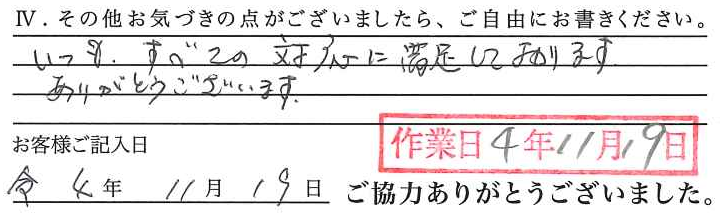 Ⅳ．その他お気づきの点がございましたら、ご自由にお書きください。
いつも、すべての対応に満足しております
ありがとうございます。
お客様ご記入日
作業日 4年11月19日
令 4年 11月 19日
ご協力ありがとうございました。